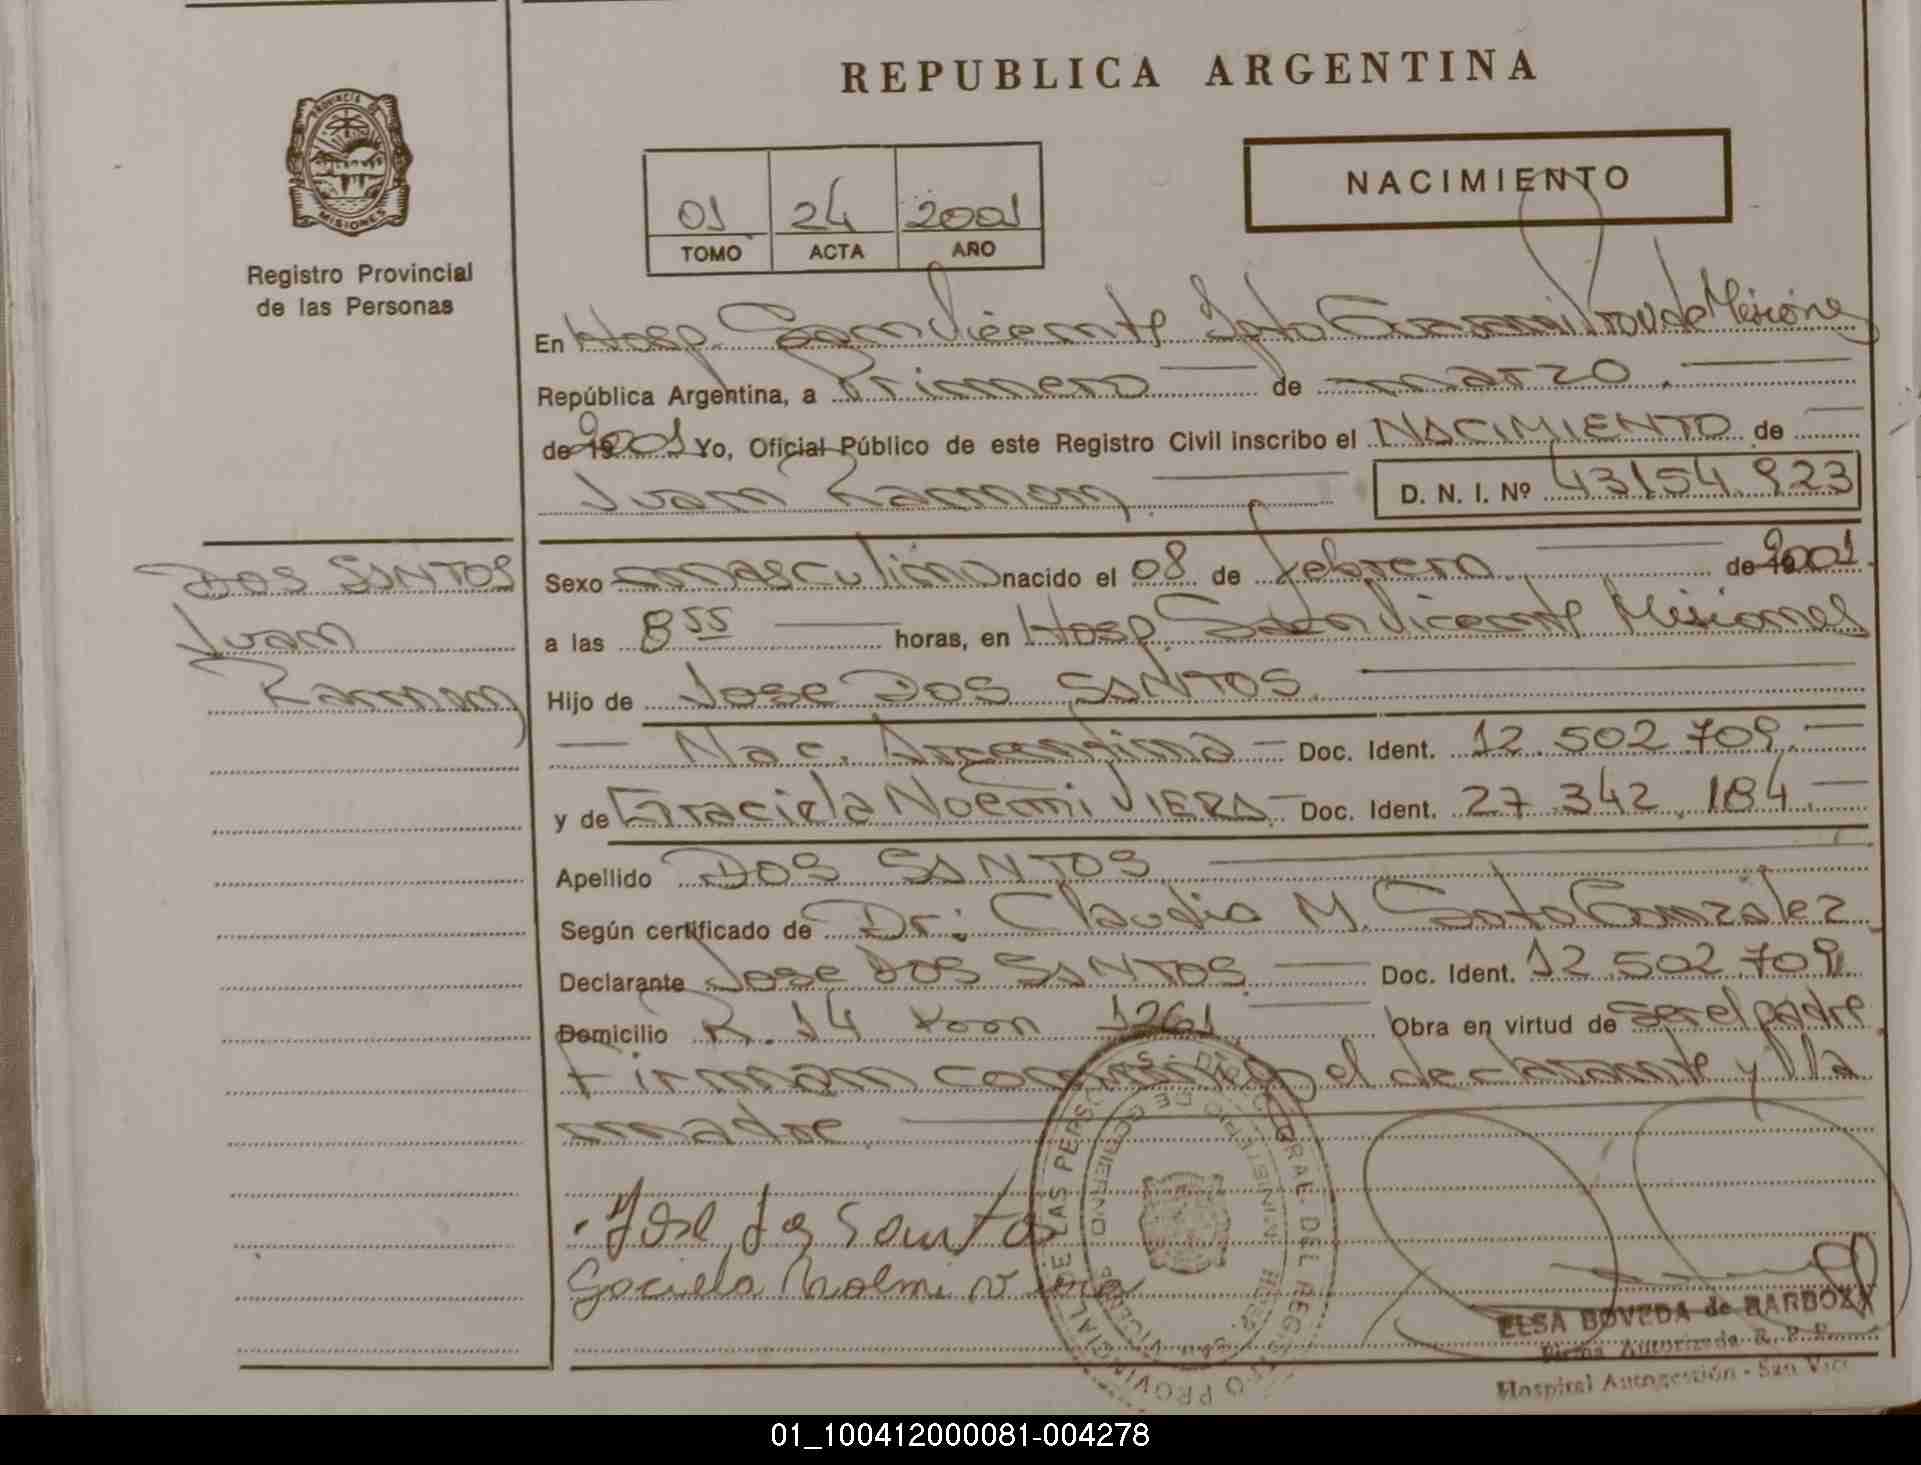 REPUBLICA ARGENTINA
PROVINCIA DE
MISIONES
Registro Provincial
de las Personas
01 24 2001
TOMO ACTA AÑO
NACIMIENTO
En Hosp. San Vicente Dpto Guarani Prov de Misiones
República Argentina, a Primero de marzo
de 19 2001 Yo, Oficial Público de este Registro Civil inscribo el NACIMIENTO de
Juan Ramon D. N. I. Nº 43154.923
DOS SANTOS
Juan
Ramon
Sexo masculino nacido el 08 de febrero de 19 2001
a las 8 55 horas, en Hosp. San Vicente Misiones
Hijo de Jose DOS SANTOS
Nac. Argentina Doc. Ident. 12.502.709
y de Graciela Noemi VIERA Doc. Ident. 27.342.184
Apellido DOS SANTOS
Según certificado de Dr: Claudio M. Soto Gonzalez
Declarante Jose DOS SANTOS Doc. Ident. 12.502.709
Domicilio R. 14 1261 Obra en virtud de ser el padre
Firman conmigo el declarante y la
madre
Jose dos Santos
ELSA BOVEDA de BARBOZA
Firma Autorizada R. P. P.
Hospital Autogestión - San Vic
01_100412000081-004278